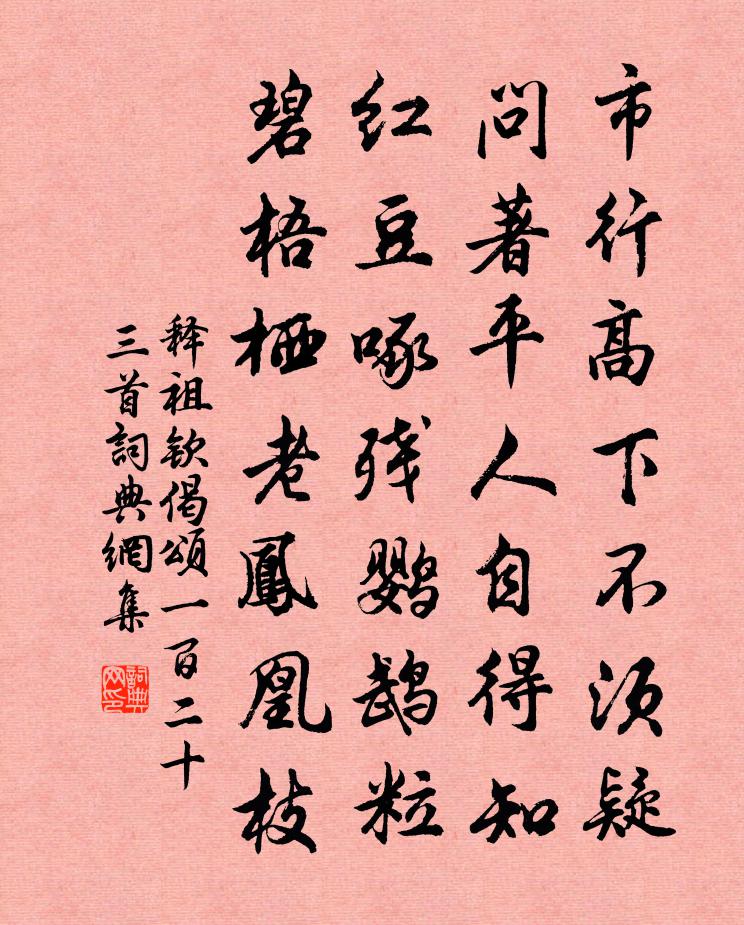 市行高下不须疑
问著平人自得知
红豆啄残鹦鹉粒
碧梧栖老鳳凰枝
释祖钦偈頌一百二十
三首詞典網集
詞典
网印